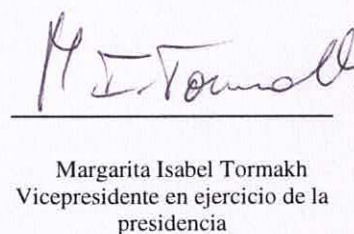 M I. Tormakh
Margarita Isabel Tormakh
Vicepresidente en ejercicio de la
presidencia